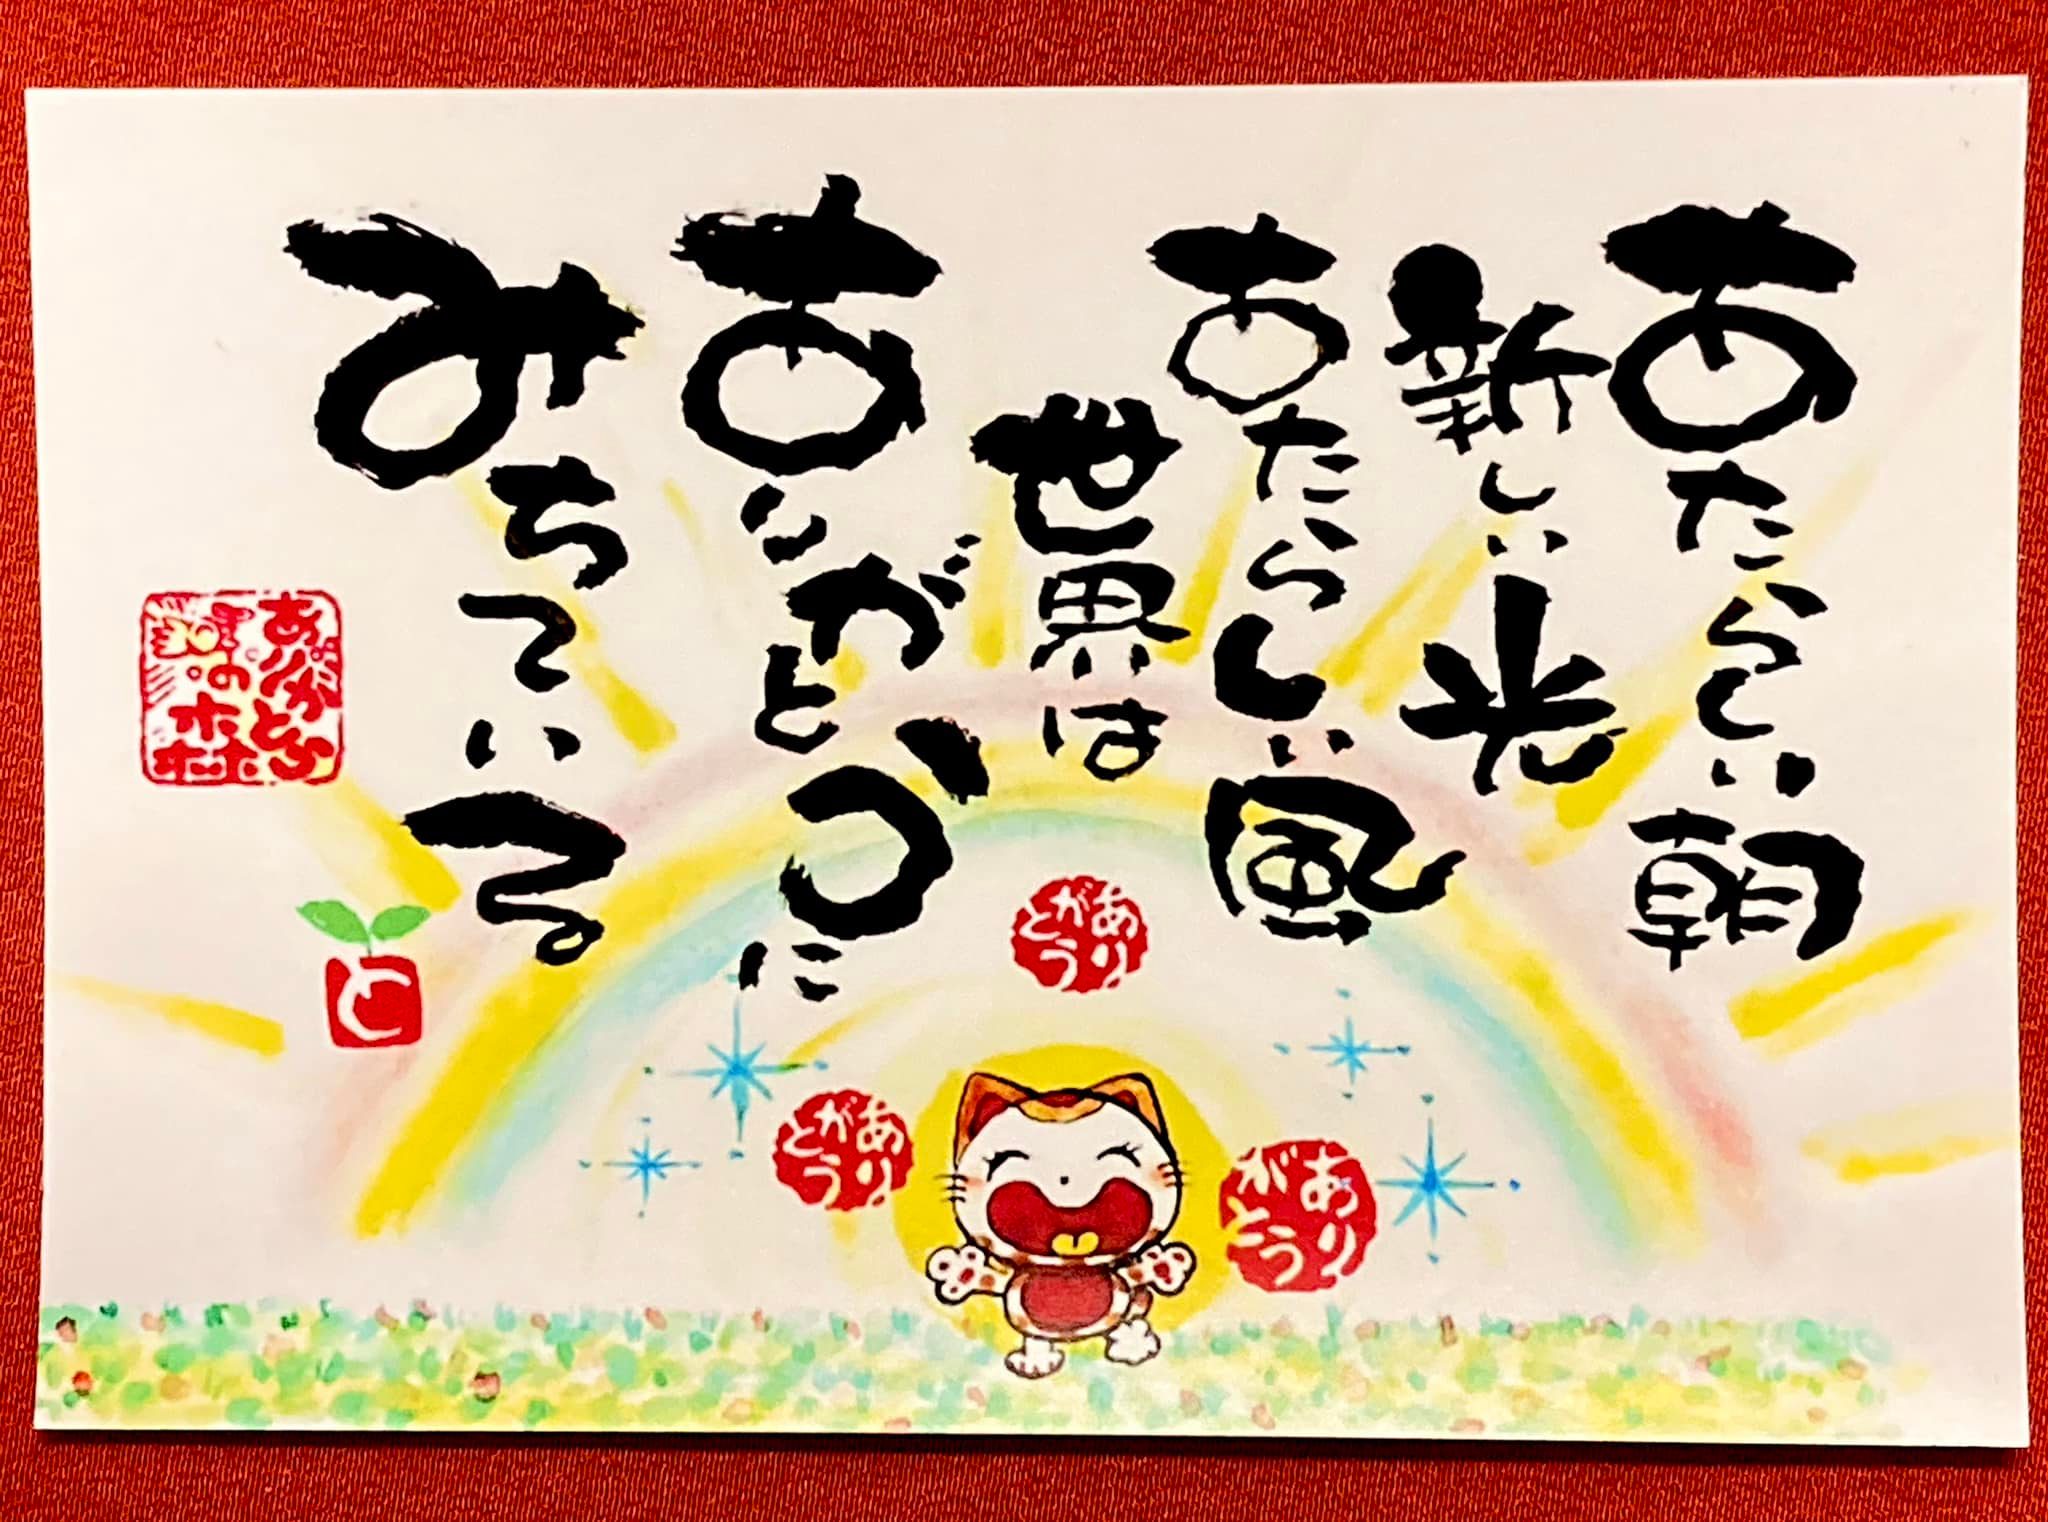 あたらしい朝
新しい光
あたらしい風
世界は
ありがとうに
みちている
ありがとう
の木
と
ありがとう
ありがとう
ありがとう